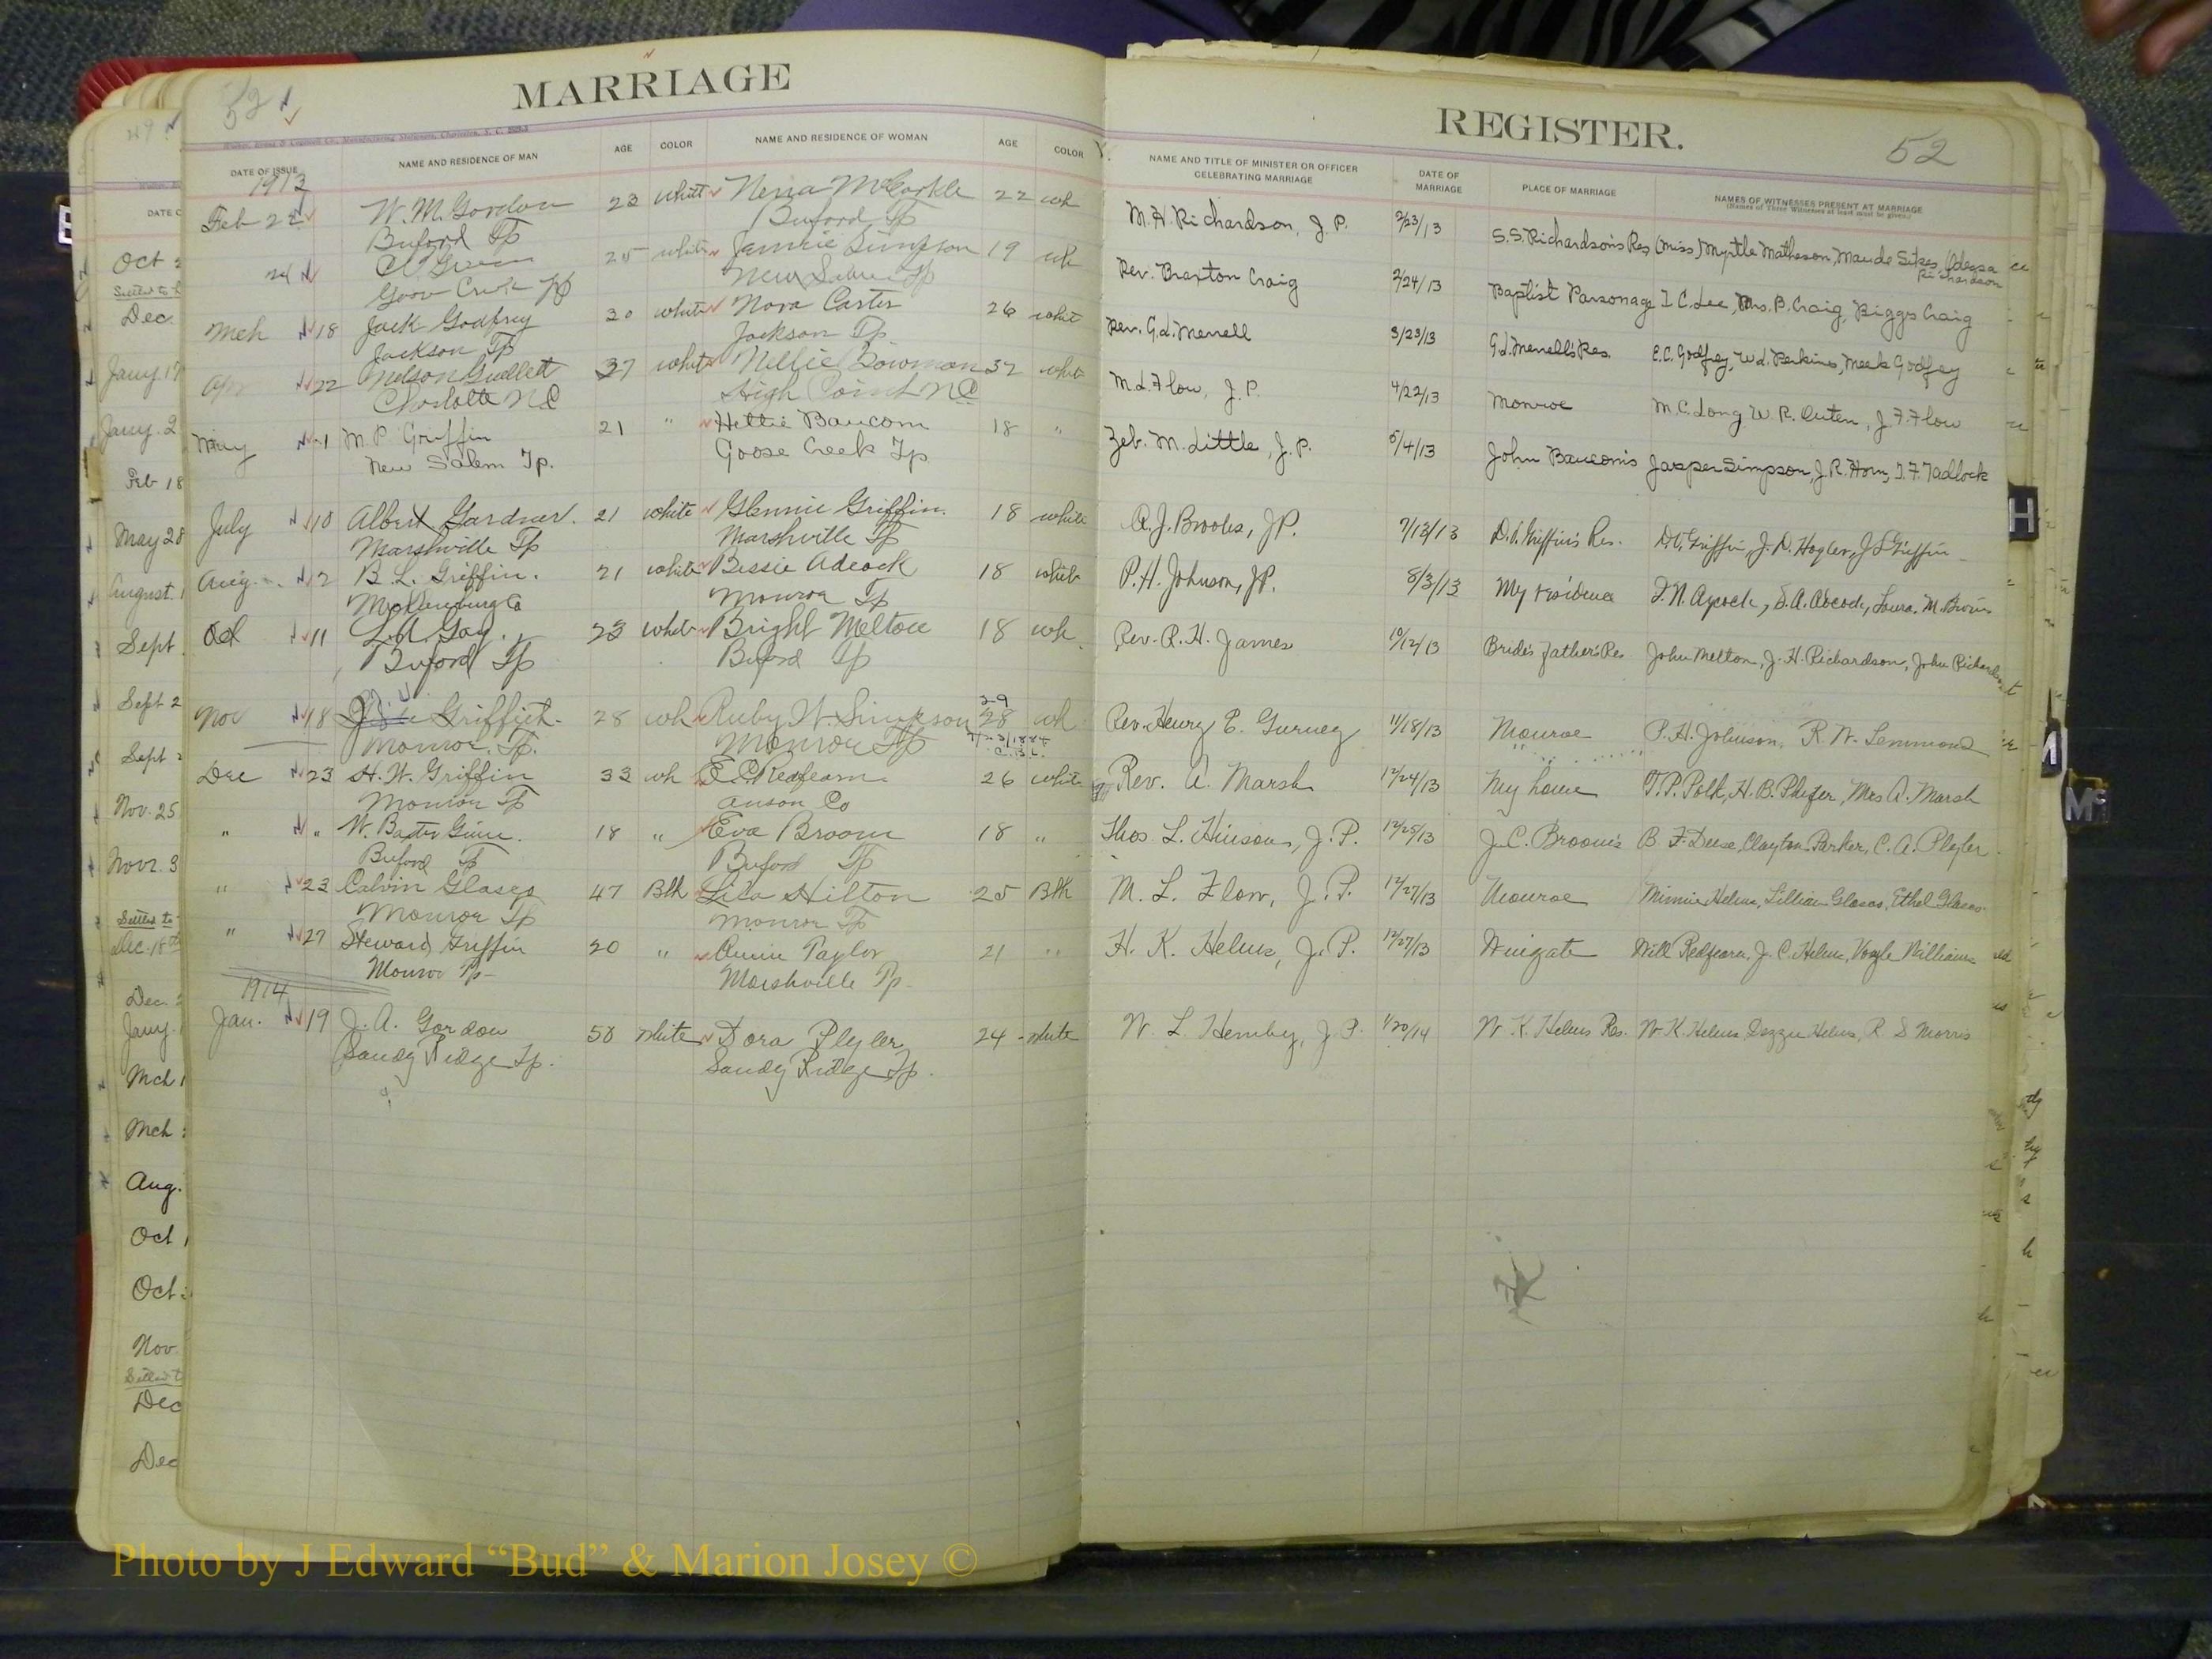 MARRIAGE
REGISTER.
52
52
DATE OF ISSUE
NAME AND RESIDENCE OF MAN
AGE
COLOR
NAME AND RESIDENCE OF WOMAN
AGE
COLOR
NAME AND TITLE OF MINISTER OR OFFICER
CELEBRATING MARRIAGE
DATE OF
MARRIAGE
PLACE OF MARRIAGE
NAMES OF WITNESSES PRESENT AT MARRIAGE
(Names of Three Witnesses at least must be given.)
1913
Feb 22 W. M. Gordon 23 white Nerra McCorkle 22 wh M. H. Richardson, J. P. 2/23/13 S. S. Richardson's Res (Miss) Myrtle Matheson, Maude Sikes, Odessa
Richardson
Buford Tp Buford Tp
24 Green 25 white Jammie Simpson 19 wh Rev. Braxton Craig 2/24/13 Baptist Parsonage T. C. Lee, Mrs. B. Craig, Biggs Craig
Goov Creek Tp New Salem Tp
Mch 18 Jack Godfrey 30 white Nora Carter 26 whit Rev. G. L. Merrell 3/23/13 G. L. Merrell's Res. E. C. Godfrey, W. L. Perkins, Meek Godfrey
Jackson Tp Jackson Tp
Apr 22 Nelson Gullett 37 white Nellie Bowman 37 whit M. L. Flow, J. P. 4/22/13 Monroe M. C. Long W. R. Outen, J. F. Flow
Charlotte N C High Point N C
May 1 M. P. Griffin 21 " Hettie Baucom 18 " Zeb. M. Little, J. P. 5/4/13 John Baucom's Jasper Simpson, J. R. Horn, T. F. Tadlock
New Salem Tp. Goose Creek Tp
July 10 Albert Gardner. 21 white Glennie Griffin. 18 white A. J. Brooks, JP. 7/13/13 D. A. Griffin's Res. D. A. Griffin, J. D. Hogler, J S Griffin
Marshville Tp Marshville Tp
Aug. 2 B. L. Griffin. 21 white Bessie Adcock 18 whit P. H. Johnson, JP. 8/3/13 My residence J. N. Aycock, S. A. Adcock, Laura. M.
Mecklenburg Co Monroe Tp
Oct 11 L. A. Gay. 23 whit Bright Melton 18 wh Rev. R. H. James 10/12/13 Bride's father's Res John Melton, J. H. Richardson, John Richardson
Buford Tp Buford Tp
29
Nov 18 Griffith 28 wh Ruby W. Simpson 28 wh Rev. Henry E. Gurney 11/18/13 Monroe P. H. Johnson, R. W. Lemmond
Monroe. Tp. Monroe Tp
Dec 23 H. W. Griffin 33 wh E C Redfearn 26 white Rev. A. Marsh 12/24/13 My home T. P. Polk, H. B. Plyler, Mrs A. Marsh
Monroe Tp Anson Co
" " W. Baxter Guin. 18 " Eva Broom 18 " Thos. L. Hinson, J. P. 12/25/13 J. C. Broom's B F. Deese, Clayton Parker, C. A. Plyler
Buford Tp Buford Tp
" 23 Calvin Glasgo 47 Blk Lila Hilton 25 Blk M. L. Flow, J. P. 12/27/13 Monroe Minnie Helms, Lillian Glasgo, Ethel Glasgo
Monroe Tp Monroe Tp
" 27 Steward Griffin 20 " Annie Taylor 21 " H. K. Helms, J. P. 12/27/13 Wingate Will Redfearn, J. C. Helms, Williams
Monroe Tp Marshville Tp
1914
Jan. 19 J. A. Gordon 50 white Dora Plyler 24 white W. L. Hemby, J P. 1/20/14 W. K. Helms Res. W. K. Helms Dozzie Helms, R S Morris
Sandy Ridge Tp. Sandy Ridge Tp.
Oct
Dec.
Jany. 17
Jany. 2
Feb 18
May 28
August. 1
Sept
Sept 2
Sept
Nov. 25
Novr. 3
Dec. 18th
Dec
Jany.
Mch 1
Mch
Aug.
Oct 1
Oct
Nov
Dec
Dec
H
Mc
Photo by J Edward “Bud” & Marion Josey ©